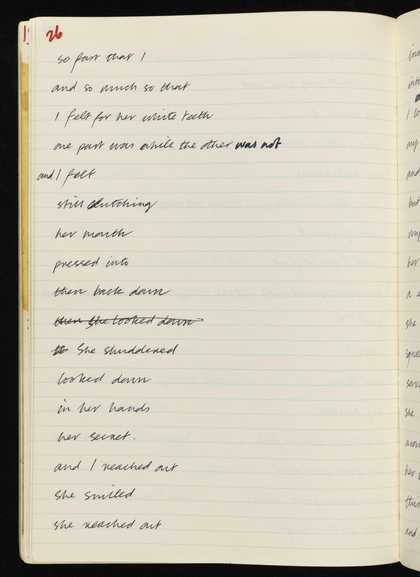 26
so fast that I
and so much so that
I felt for her white teeth
one part was while the other was not
and I felt
still clutching
her mouth
pressed into
then back down
then she looked down
She shuddered
looked down
in her hands
her secret.
and I reached out
she smiled
she reached out